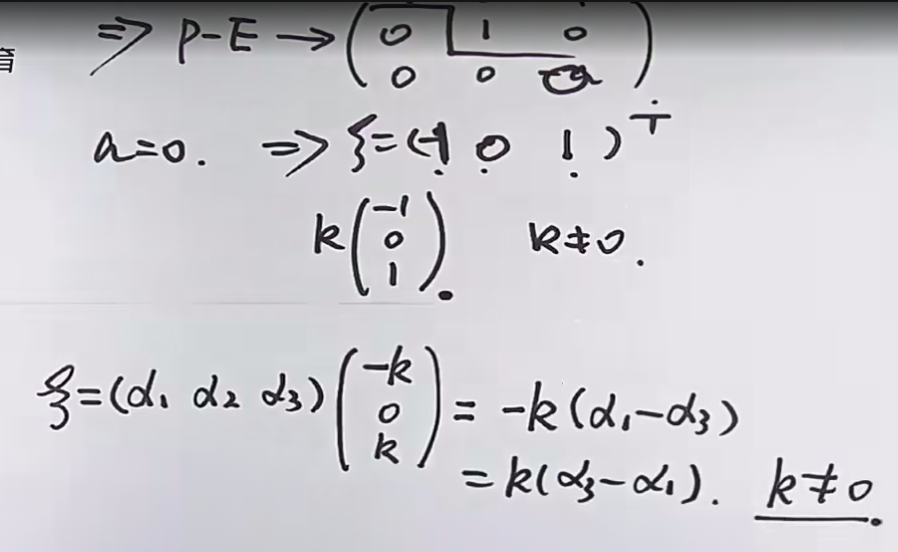 ⇒ P-E → ( 0 1 0
育
0 0 a )
a=0. ⇒ ξ=(-1 0 1)ᵀ
k(-1 0 1). k≠0.
ξ=(α₁ α₂ α₃)(-k 0 k) = -k(α₁-α₃)
= k(α₃-α₁). k≠0.